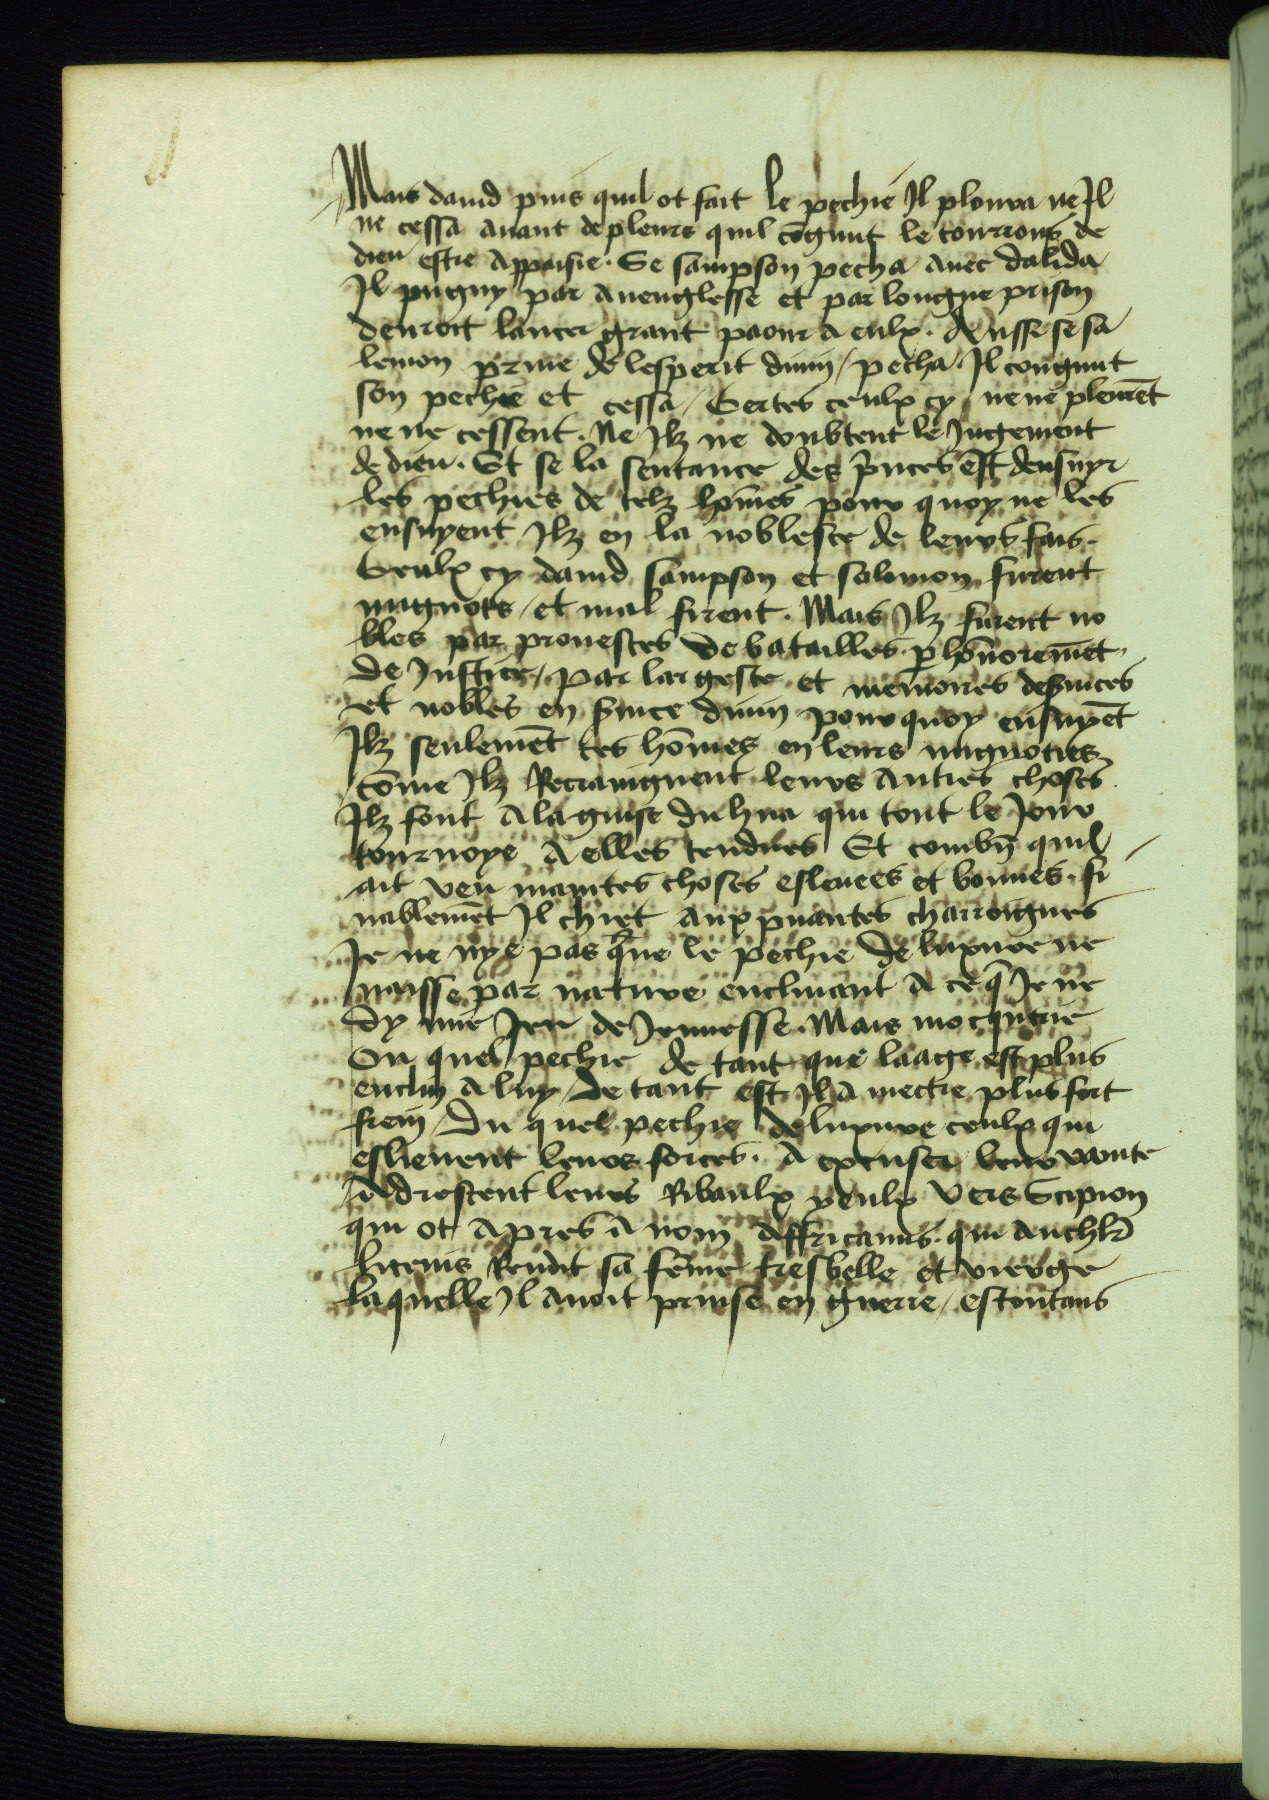 Mais dauid puis quil ot fait le pechie Il ploura ne Il
ne cessa auant de pleurs quil cōgnut le courrous de
dieu estre Appaisie. Se sampson pecha Auec dalida
Il pugny par Aueuglesse et par longue prison
deuroit lancer grant paour A eulx. Aussi se sa
lemon priue de lesperit diuin / pecha. Il congnut
son pechie et cessa / Certes ceulx cy ne ne pleurēt
ne ne cessent. Ne Ilz ne doubtent le Jugement
de dieu. Et se la sentance des p̄nces est densuyr
les pechies de telz hōmes pour quoy ne les
ensuyent Ilz en la noblesce de leurs fais.
Ceulx cy dauid sampson et salomon furent
mignots / et mal firent. Mais Ilz furent no
bles par prouesces de batailles. p hōnoremēt
de Justice / par largesce et memoires des
et nobles en diuin pour quoy ensuyēt
Ilz seulemēt tes hōmes en leurs mignoties
cōme Ilz Recraingnent leurs Autres choses
Ilz font A la guise du hua qui tout le Jour
tournoye A elles tendues Et combn̄ quil /
ait veu maintes choses esleuees et bonnes. fi
nablemēt Il chiet aux puantes charroignes
Je ne nye pas que le pechie de luxure ne
naisse par nature enclinant A ce q̄ Je ne
dy mie Jeu de Jeunesse. Mais mocquerie
Ou quel pechie de tant que laage est plus
enclin A luy / de tant est Il A mectre plus fort
frein / Du quel pechie de luxure ceulx qui
eslieuent leurs forces. A excuser leur vante
Adrescent leurs Ribaulx yeulx vers Scipion
qui ot Apres A nom Affricanus. qui Au
lucenis Rendit sa fēme tresbelle et vierge
laquelle Il Auoit prinse en guerre / estoutans